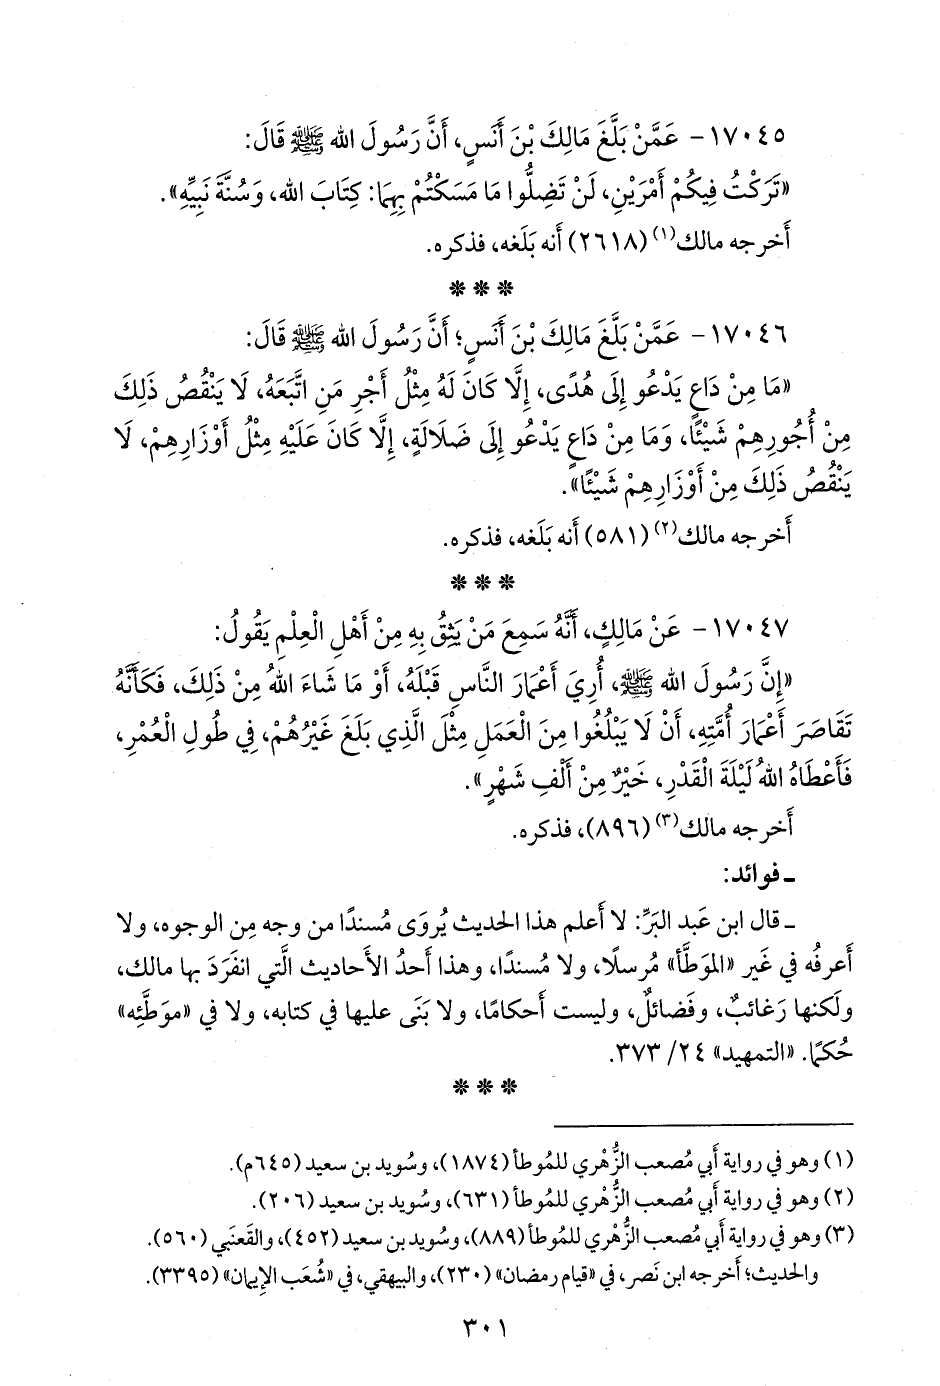 ١٧٠٤٥- عَمَّنْ بَلَّغَ مَالِكَ بْنَ أَنَسٍ، أَنَّ رَسُولَ الله ﷺ قَالَ:
«تَرَكْتُ فِيكُمْ أَمْرَيْنِ، لَنْ تَضِلُّوا مَا مَسَكْتُمْ بِهِمَا: كِتَابَ الله، وَسُنَّةَ نَبِيِّهِ».
أَخرجه مالك(١) (٢٦١٨) أَنه بَلَغه، فذكره.
***
١٧٠٤٦- عَمَّنْ بَلَّغَ مَالِكَ بْنَ أَنَسٍ؛ أَنَّ رَسُولَ الله ﷺ قَالَ:
«مَا مِنْ دَاعٍ يَدْعُو إِلَى هُدًى، إِلَّا كَانَ لَهُ مِثْلُ أَجْرِ مَنِ اتَّبَعَهُ، لَا يَنْقُصُ ذَلِكَ
مِنْ أُجُورِهِمْ شَيْئًا، وَمَا مِنْ دَاعٍ يَدْعُو إِلَى ضَلَالَةٍ، إِلَّا كَانَ عَلَيْهِ مِثْلُ أَوْزَارِهِمْ، لَا
يَنْقُصُ ذَلِكَ مِنْ أَوْزَارِهِمْ شَيْئًا».
أَخرجه مالك(٢) (٥٨١) أَنه بَلَغه، فذكره.
***
١٧٠٤٧- عَنْ مَالِكٍ، أَنَّهُ سَمِعَ مَنْ يَثِقُ بِهِ مِنْ أَهْلِ الْعِلْمِ يَقُولُ:
«إِنَّ رَسُولَ الله ﷺ، أُرِيَ أَعْمَارَ النَّاسِ قَبْلَهُ، أَوْ مَا شَاءَ اللهُ مِنْ ذَلِكَ، فَكَأَنَّهُ
تَقَاصَرَ أَعْمَارَ أُمَّتِهِ، أَنْ لَا يَبْلُغُوا مِنَ الْعَمَلِ مِثْلَ الَّذِي بَلَغَ غَيْرُهُمْ، فِي طُولِ الْعُمْرِ،
فَأَعْطَاهُ اللهُ لَيْلَةَ الْقَدْرِ، خَيْرٌ مِنْ أَلْفِ شَهْرٍ».
أَخرجه مالك(٣) (٨٩٦)، فذكره.
ـ فوائد:
ـ قال ابن عَبد البَرِّ: لا أَعلم هذا الحديث يُروَى مُسندًا من وجه مِن الوجوه، ولا
أَعرفُه في غَير «الموَطَّأ» مُرسلًا، ولا مُسندًا، وهذا أَحدُ الأَحاديث الَّتي انفَرَدَ بها مالك،
ولَكنها رَغائبٌ، وفَضائلٌ، وليست أَحكامًا، ولا بَنَى عليها في كتابه، ولا في «موَطَّئِه»
حُكمًا. «التمهيد» ٢٤/ ٣٧٣.
***
(١) وهو في رواية أَبي مُصعب الزُّهْري للمُوطأ (١٨٧٤)، وسُويد بن سعيد (٦٤٥م).
(٢) وهو في رواية أَبي مُصعب الزُّهْري للمُوطأ (٦٣١)، وسُويد بن سعيد (٢٠٦).
(٣) وهو في رواية أَبي مُصعب الزُّهْري للمُوطأ (٨٨٩)، وسُويد بن سعيد (٤٥٢)، والقَعنَبي (٥٦٠).
والحديث؛ أَخرجه ابن نَصر، في «قيام رمضان» (٢٣٠)، والبيهقي، في «شُعَب الإِيمان» (٣٣٩٥).
٣٠١